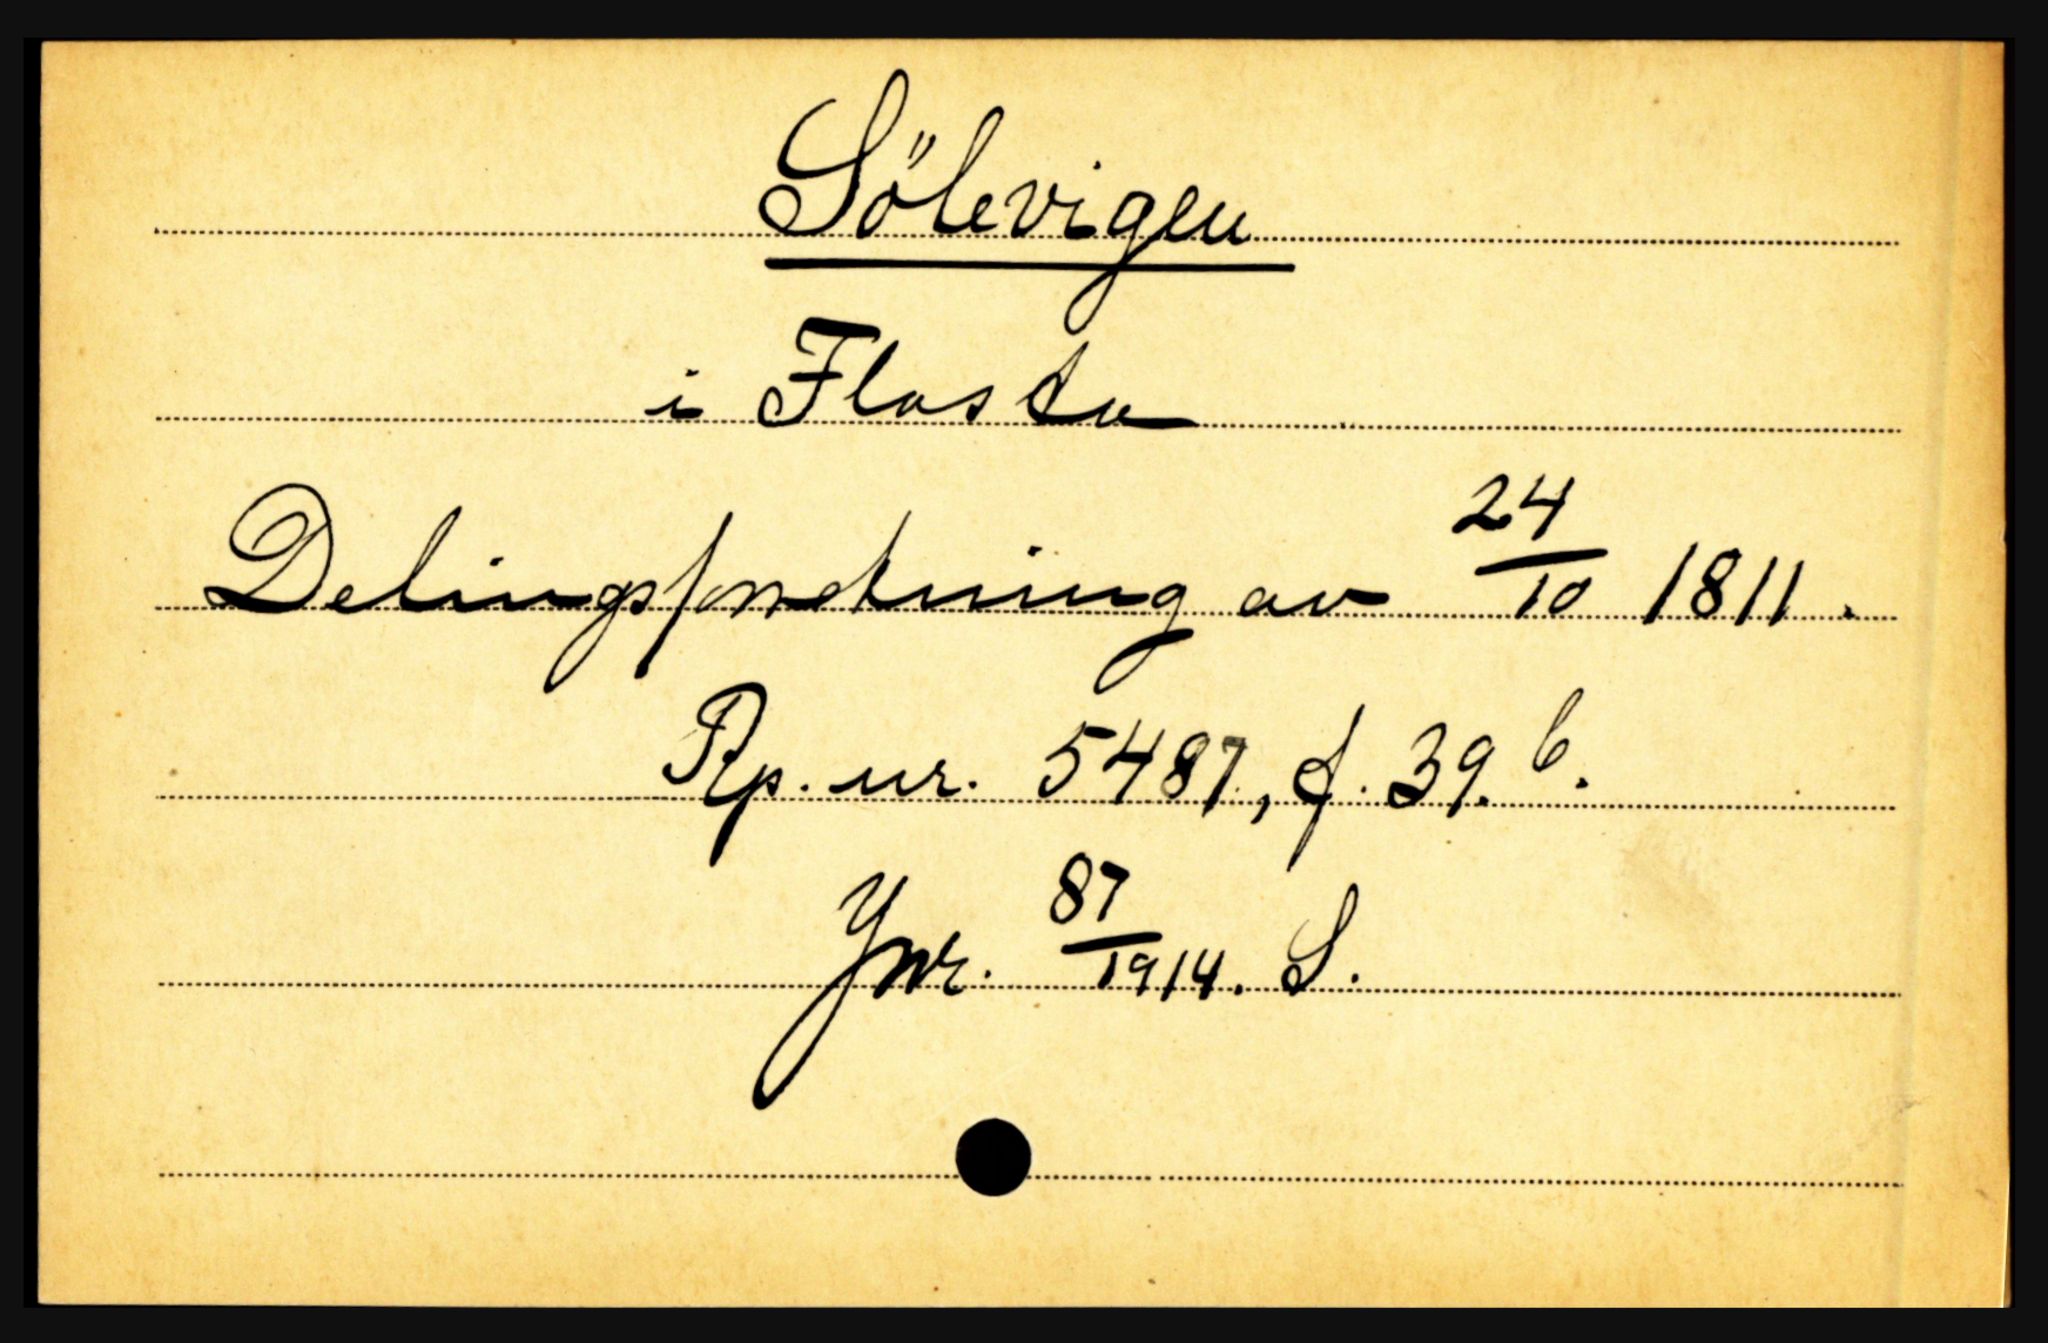 Sölevigen
i Flosta
Delingsforretning av 24/10 1811.
Rp. nr. 5487, f. 39. b.
Jnr. 87/1914. S.